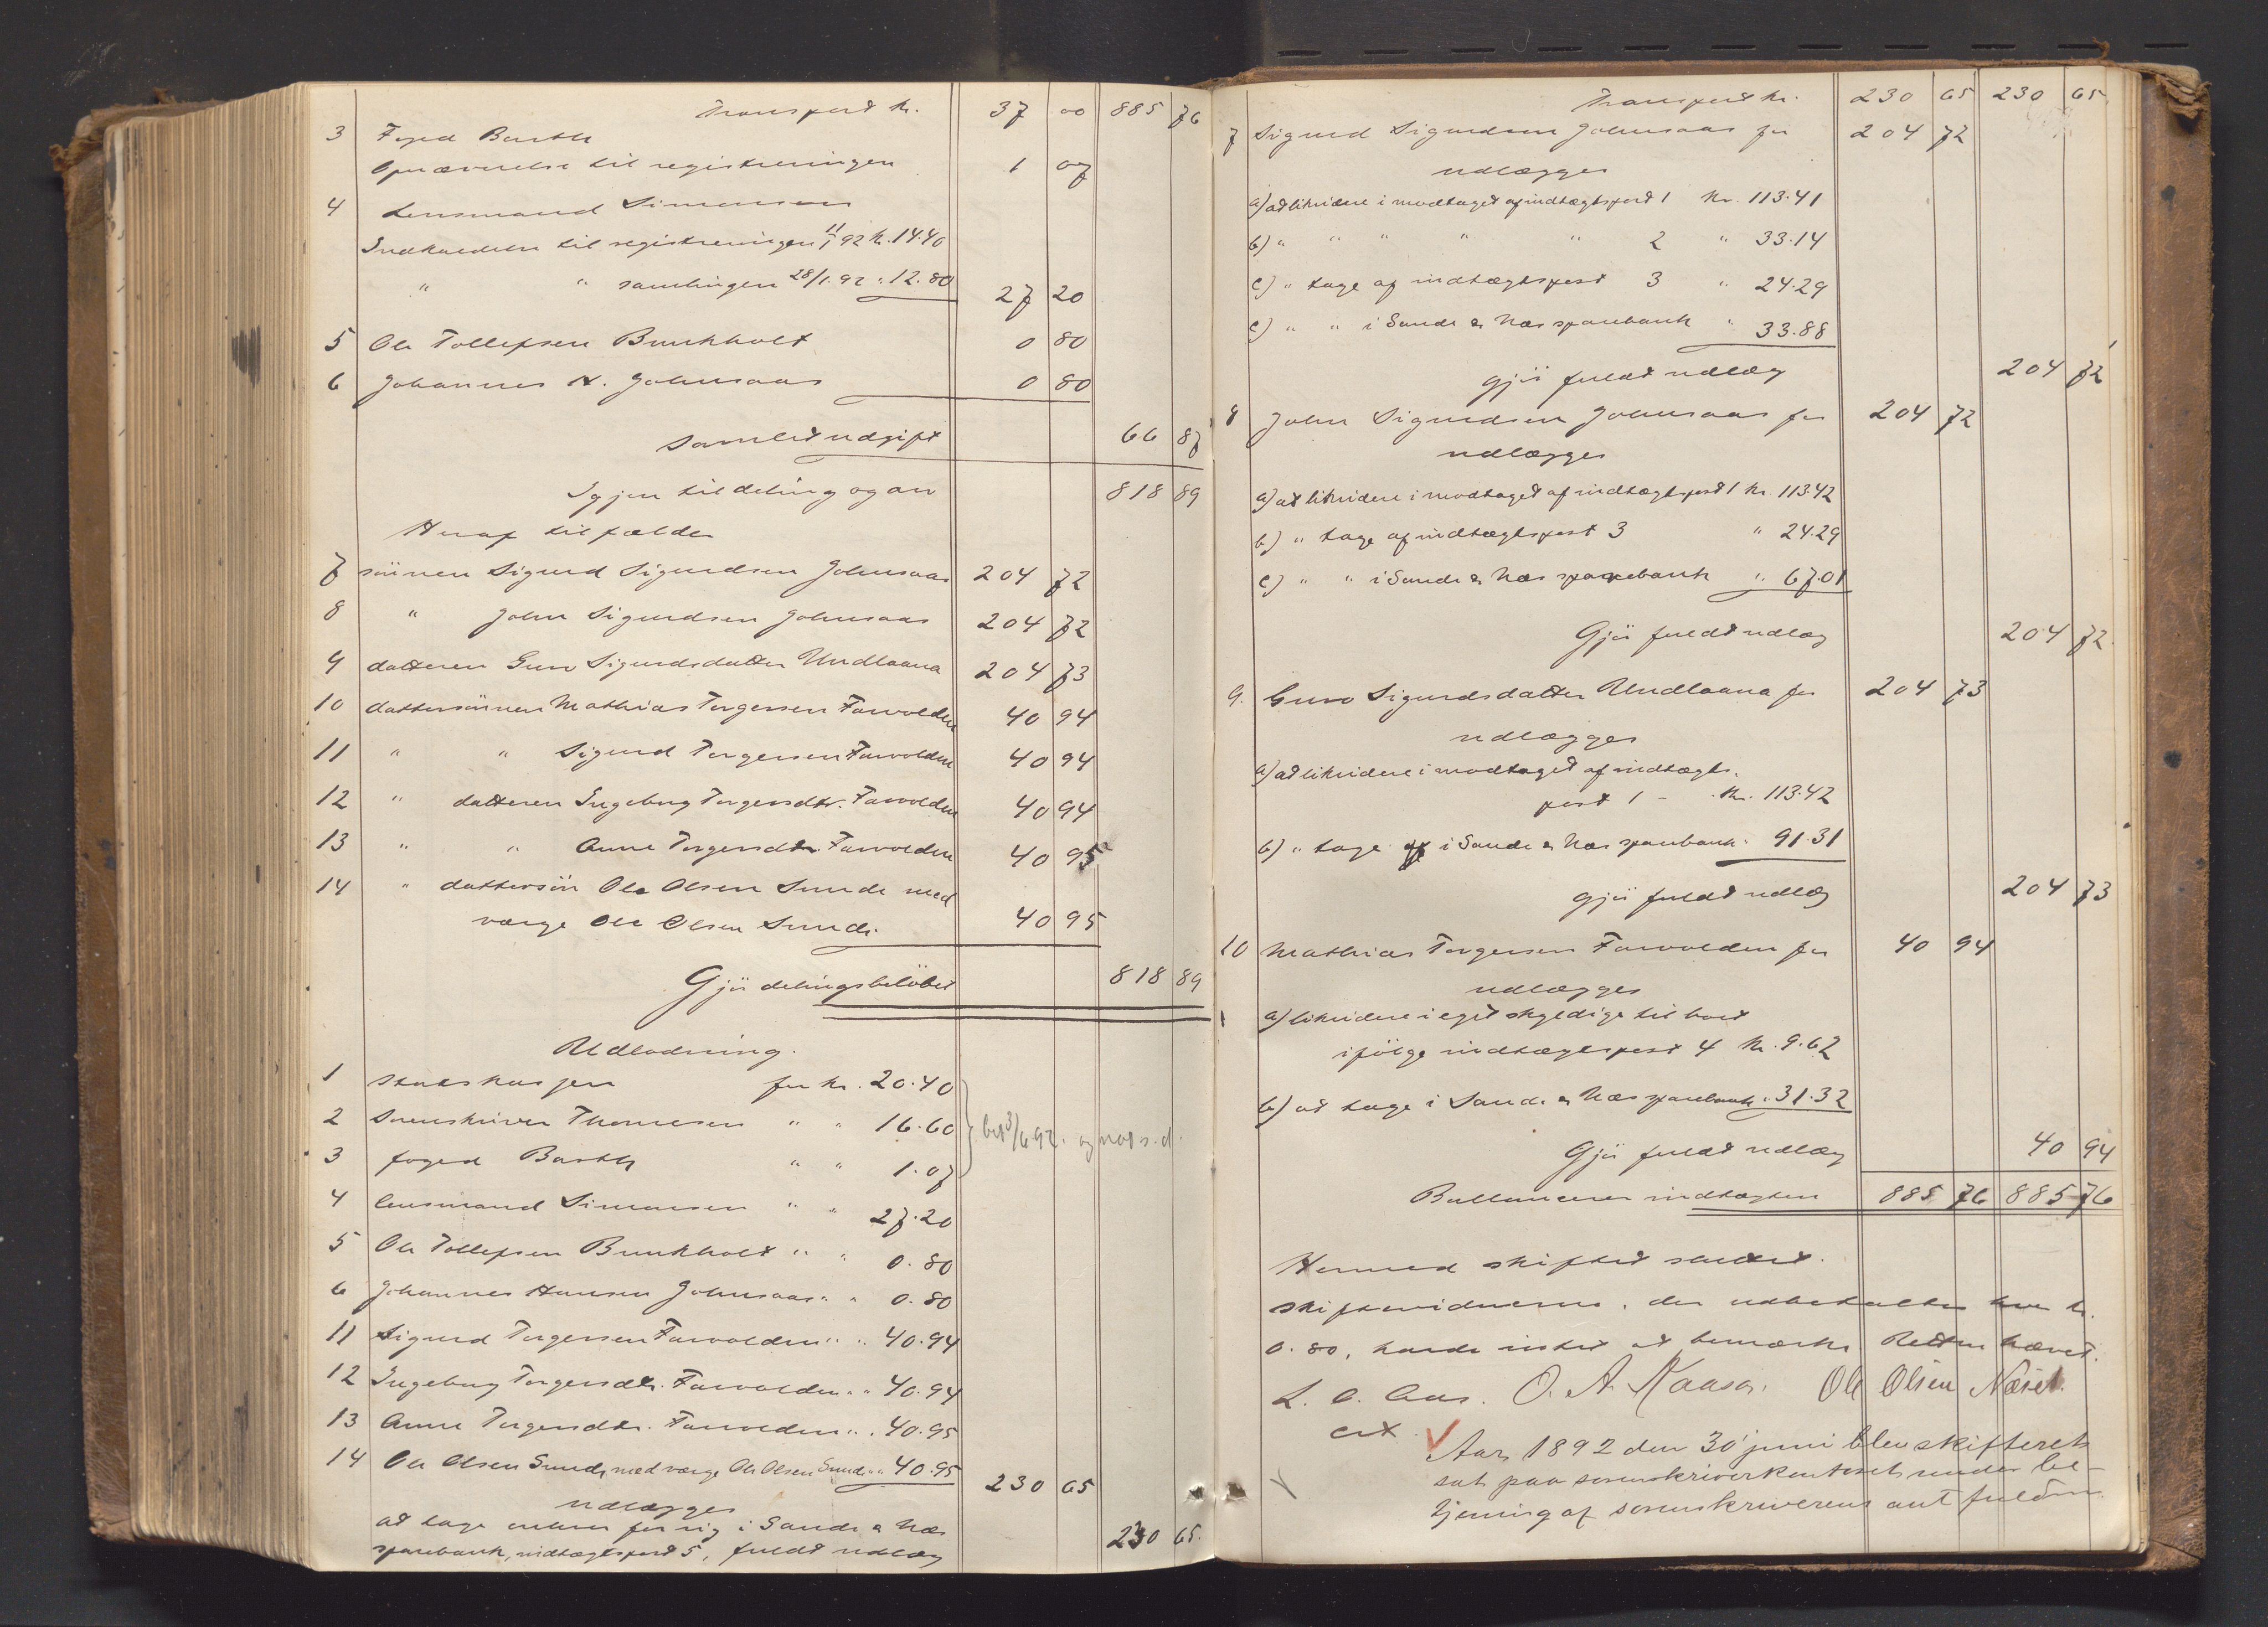 Transport kr. 37 00 885 76
3 Foged Barth
Opnævnelse til registreringen 1 07
4 Lensmand Simonsen
Indkaldelse til registreringen 11/1 92 kr. 14.40
" " samlingen 28/1. 92 " 12.80 27 20
5 Ole Tollefsen Bunkholt 0 80
6 Johannes H. Johnsaas 0 80
Samlet udgift 66 87
Igjen til deling og arv 818 89
Heraf tilfalder
7 sönnen Sigurd Sigurdsen Johnsaas 204 72
8 " John Sigurdsen Johnsaas 204 72
9 datteren Guro Sigurdsdatter Undlaana 204 73
10 dattersönnen Mathias Torgersen Farvolden 40 94
11 " " Sigurd Torgersen Farvolden 40 94
12 " datteren Ingeborg Torgersdtr. Farvolden 40 94
13 " " Anne Torgersdtr. Farvolden 40 95
14 " dattersön Ole Olsen Sunde med
værge Ole Olsen Sunde. 40 95
Gjör delingsbelöbet 818 89
Udlodning.
1 Statskassen for kr. 20.40
2 Sorenskriver Thomesen " " 16.60
bet 3/6 92. og not s. d.
3 foged Barth " " 1.07
4 lensmand Simonsen " " 27.20
5 Ole Tollefsen Bunkholt " " 0.80
6 Johannes Hansen Johnsaas " " 0.80
11 Sigurd Torgersen Farvolden " " 40.94
12 Ingeborg Torgersdtr. Farvolden " " 40.94
13 Anne Torgersdtr. Farvolden " " 40.95
14 Ole Olsen Sunde med værge Ole Olsen Sunde " " 40.95 230 65
udlægges
at tage enhver for sig i Sande & Næs
sparebank, indtægtspost 5, fuldt udlæg 230 65.
Transport kr. 230 65 230 65
7 Sigurd Sigurdsen Johnsaas for 204 72
udlægges
a) at likvidere i modtaget af indtægtspost 1 kr. 113.41
b) " " " " " 2 " 33.14
c) " tage af indtægtspost 3 " 24.29
c) " " i Sande & Næs sparebank " 33.88
gjör fuldt udlæg 204 72
8 John Sigurdsen Johnsaas for 204 72
udlægges
a) at likvidere i modtaget af indtægtspost 1 kr. 113.42
b) " tage af indtægtspost 3 " 24.29
c) " " i Sande & Næs sparebank " 67.01
Gjör fuldt udlæg 204 72.
9. Guro Sigurdsdatter Undlaana for 204 73
udlægges
a) at likvidere i modtaget af indtægts-
post 1 - kr. 113.42
b) " tage i Sande & Næs sparebank " 91.31
gjör fuldt udlæg 204 73
10 Mathias Torgersen Farvolden for 40 94
udlægges
a) likvidere i eget skyldige til boet
ifölge indtægtspost 4 kr. 9.62
b) at tage i Sande & Næs sparebank " 31.32
Gjör fuldt udlæg 40 94
Ballancerer indtægten 885 76 885 76
Hermed skiftet sluttet.
Skiftevidnerne, der udbetaltes hver kr.
0.80, havde intet at bemærke. Retten hævet.
L. C. Aas. O. A. Kaasa. Ole Olsen Næset.
cst
Aar 1892 den 30' juni blev skifteret
sat paa sorenskriverkontoret under be-
tjening af sorenskriverens aut fuldm.